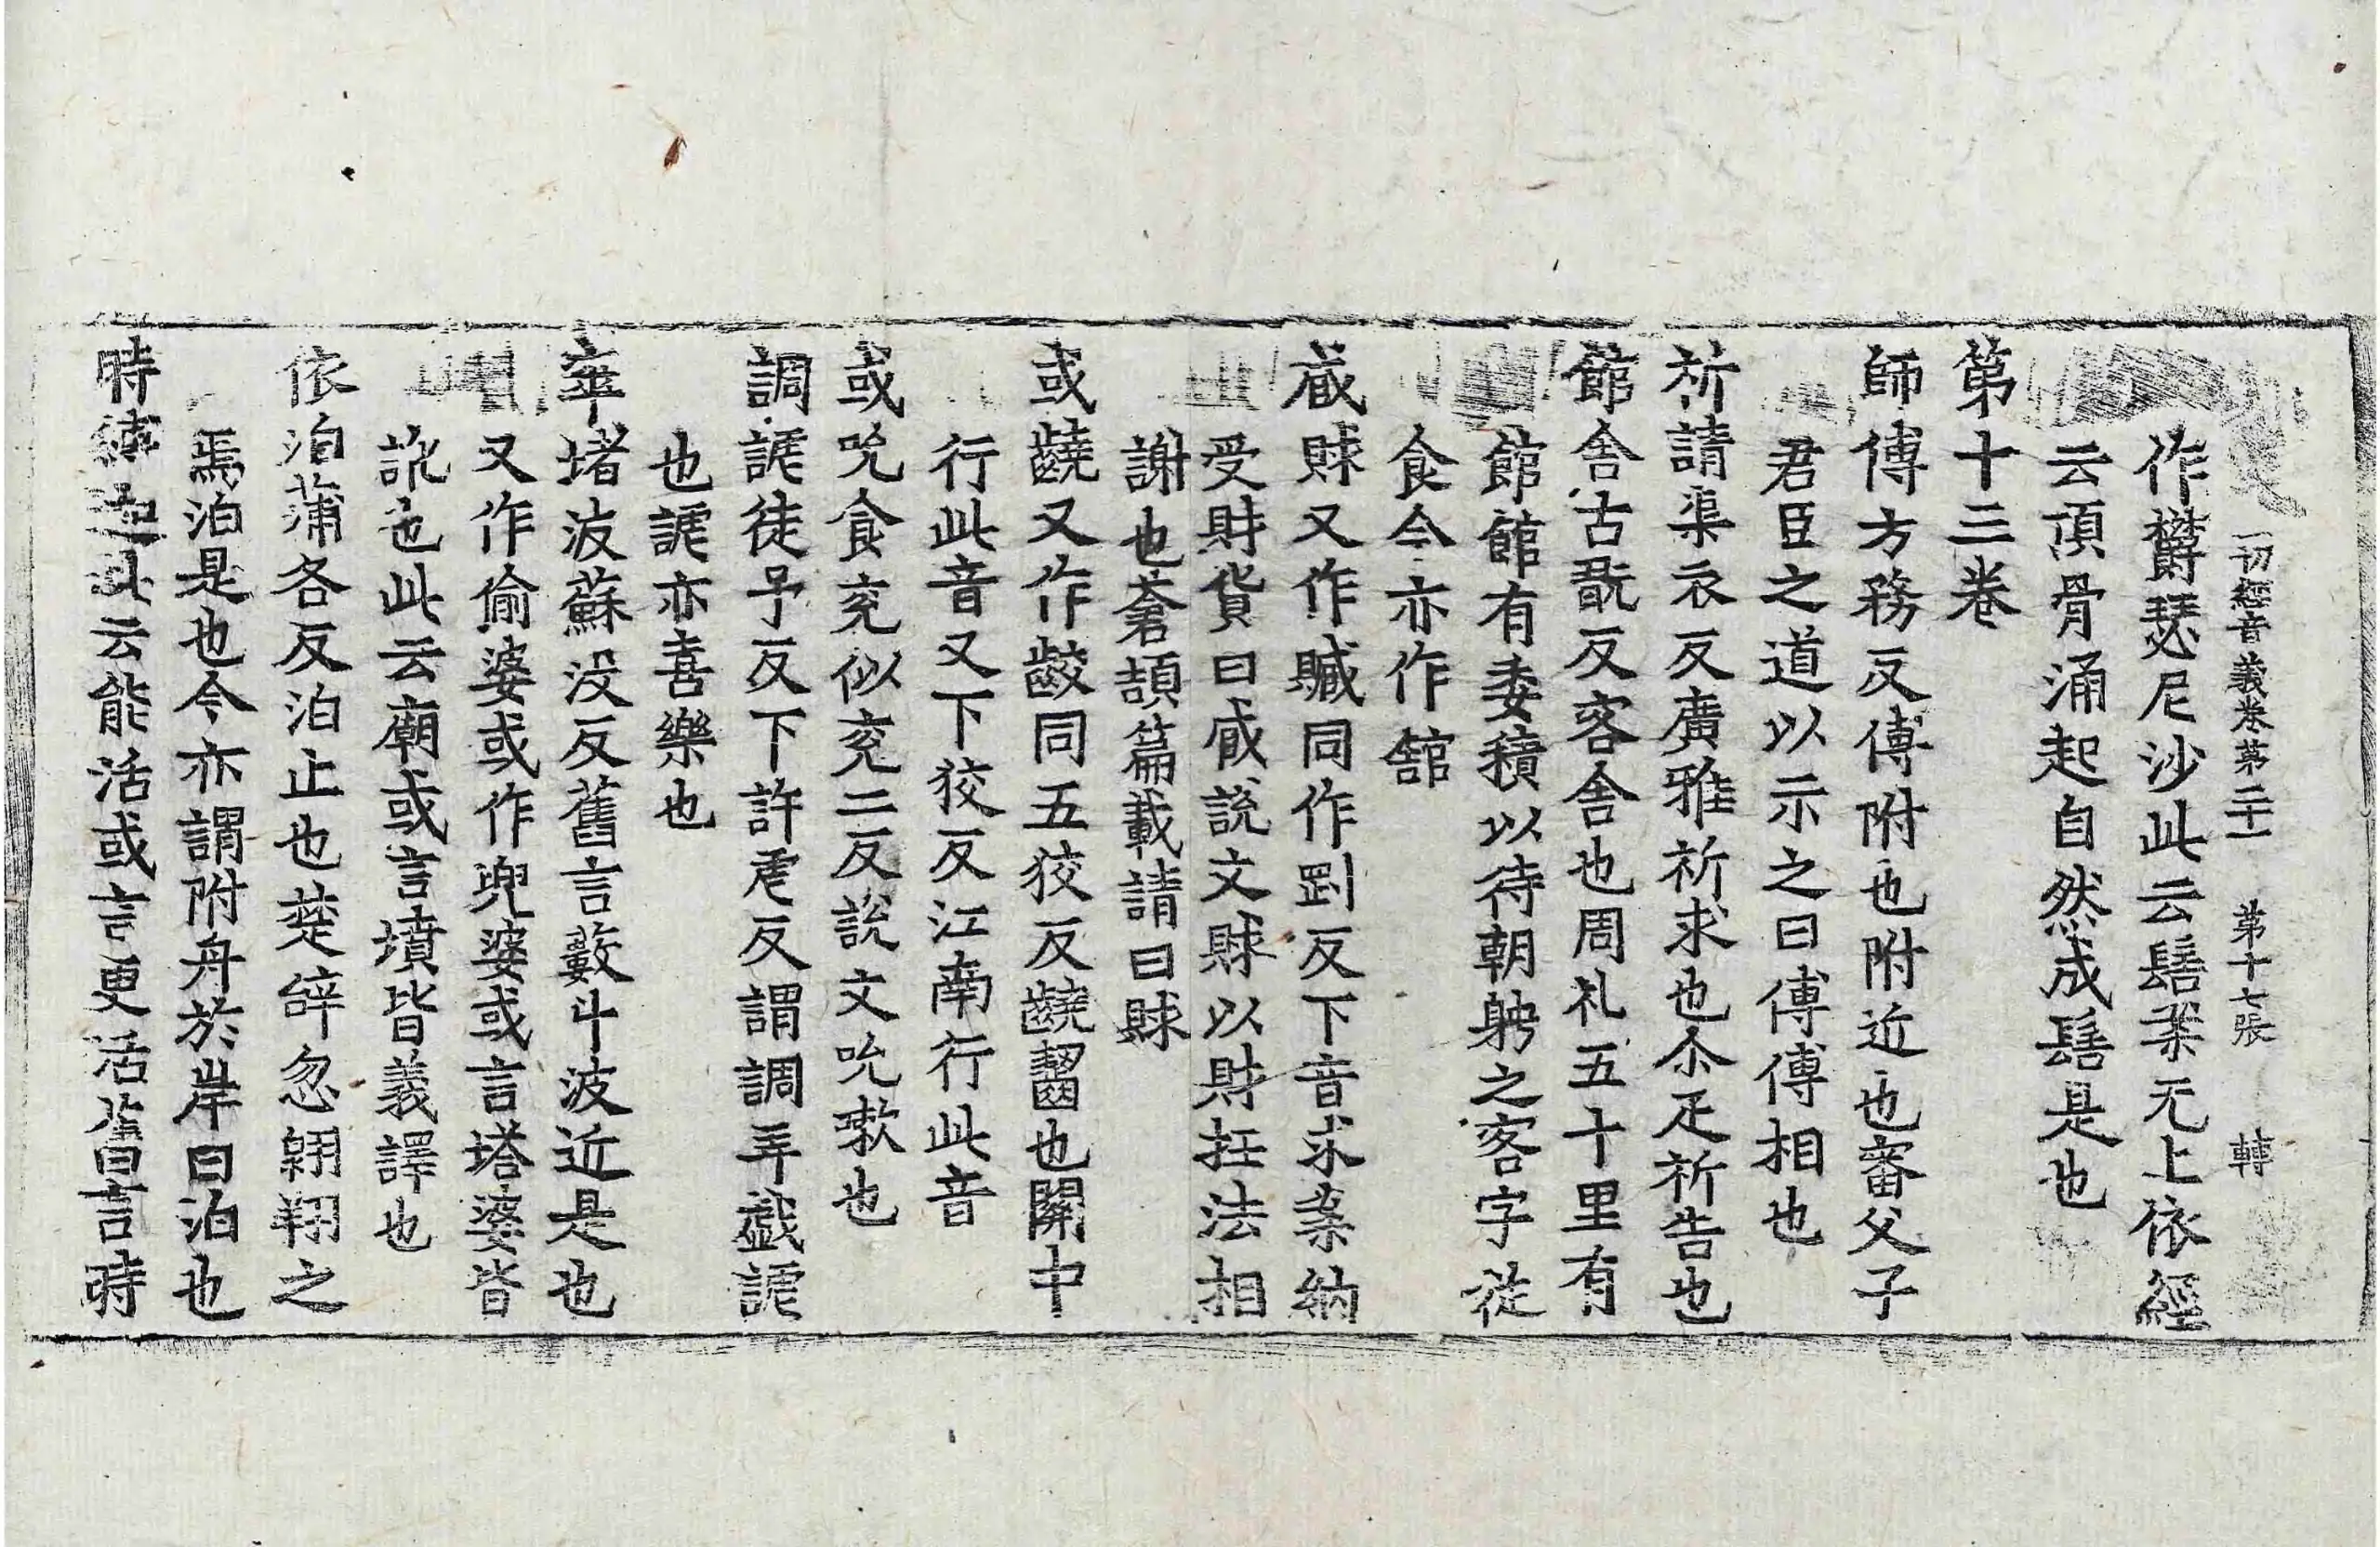 一切經音義卷第二十一 第十七張 轉
作欝瑟尼沙此云髻案无上依經
云頂骨涌起自然成髻是也
第十三卷
師傅方務反傅附也附近也審父子
君臣之道以示之曰傅傅相也
祈請渠衣反廣雅祈求也尒疋祈告也
館舍古翫反客舍也周礼五十里有
館館有委積以待朝娉之客字從
食今亦作舘
賕又作贓同作剅反下音求案納
受財貨曰戚說文賕以財抂法相
謝也蒼頡篇載請曰賕
或齩又作齩同五狡反齩齧也關中
行此音又下狡反江南行此音
或吮食兖似兖二反說文吮嗽也
調謔徒予反下許虐反謂調弄戲謔
也謔亦喜樂也
窣堵波蘇没反舊言藪斗波近是也
又作偷婆或作兜婆或言塔婆皆
訛也此云廟或言墳皆義譯也
依泊蒲各反泊止也楚辞忽翱翔之
焉泊是也今亦謂附舟於岸曰泊也
時縛迦此云能活或言更活舊言時